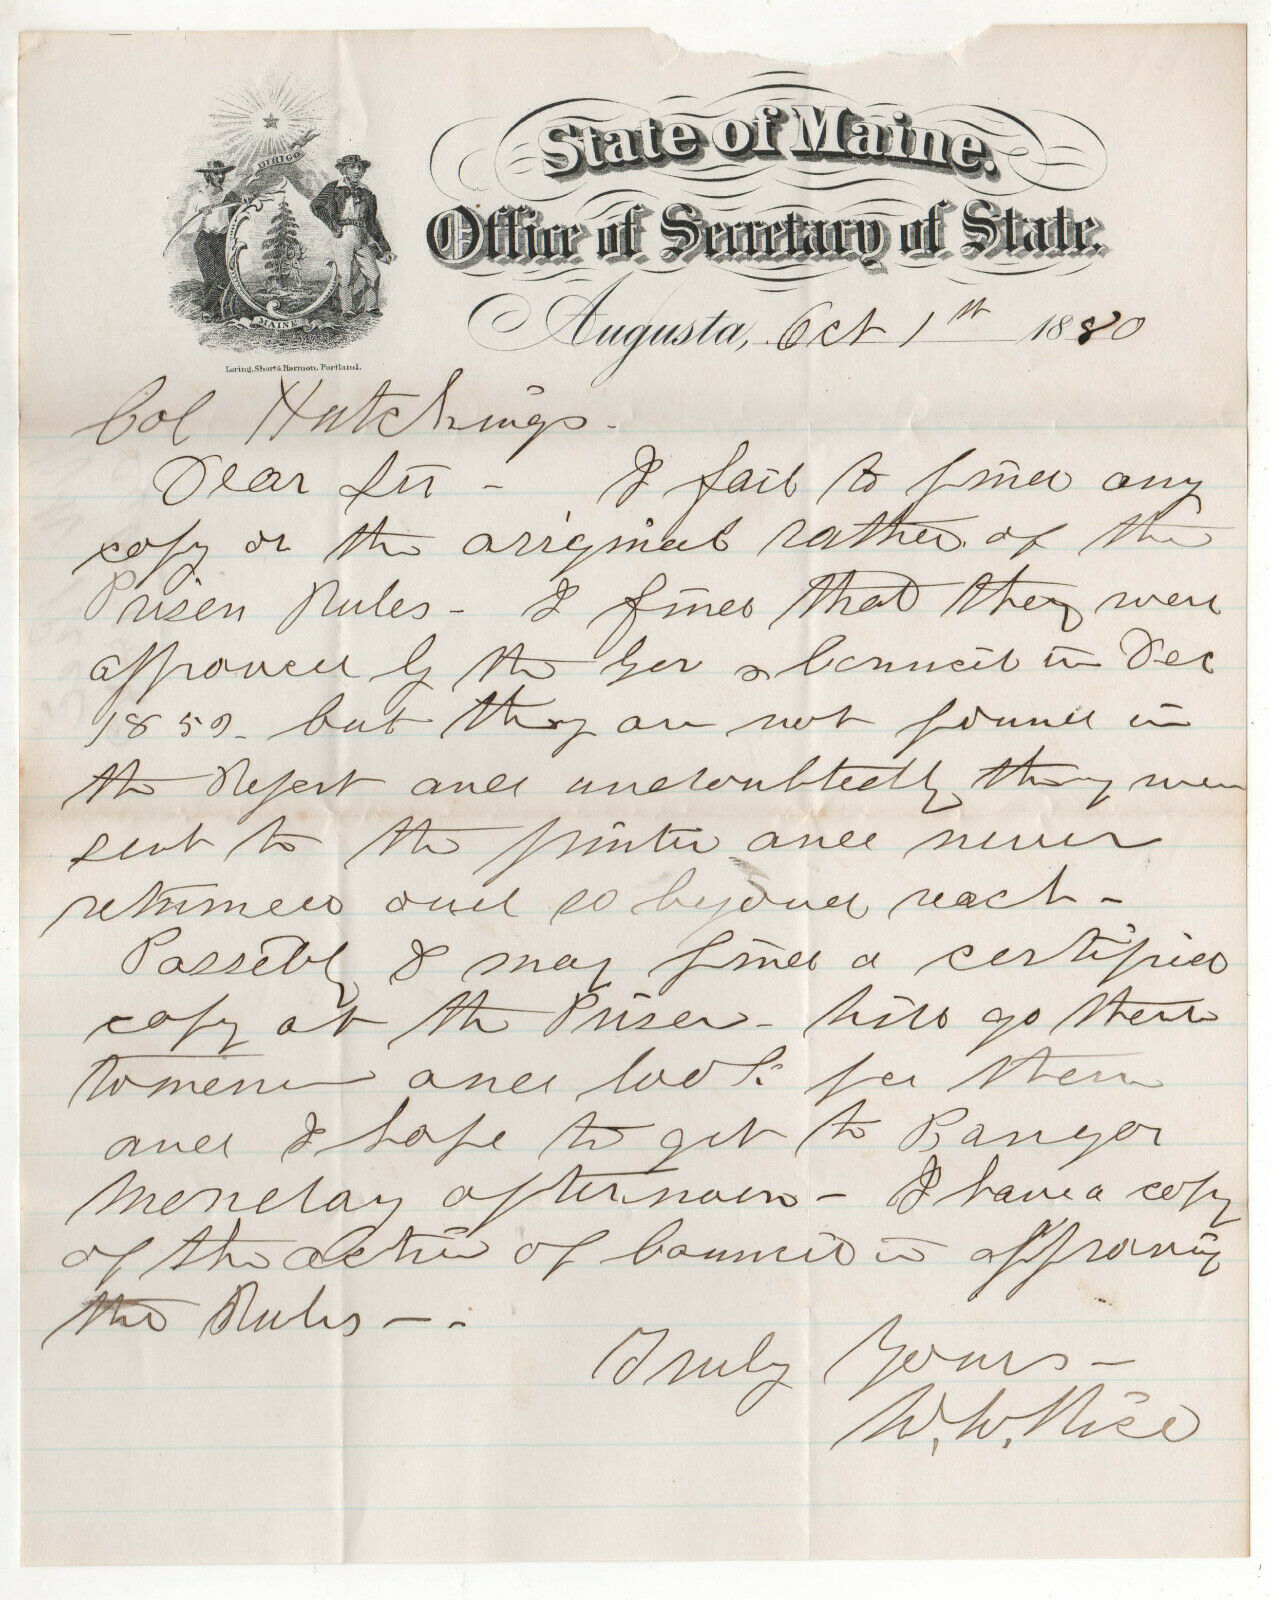 DIRIGO
MAINE
Loring, Short & Harmon, Portland.
State of Maine.
Office of Secretary of State.
Augusta, Oct 1st 1880
Col Hutchings.
Dear Sir - I fail to find any
copy or the original rather of the
Prison Rules - I find that they were
approved by the Gov & Council in Dec
1859 - but they are not found in
the Report and undoubtedly they were
sent to the printer and never
returned and so beyond reach -
Possibly I may find a certified
copy at the Prison - Will go there
tomorrow and look for them
and I hope to get to Bangor
Monday afternoon - I have a copy
of the action of Council in approving
the Rules - -
Truly Yours -
W. W. Rice